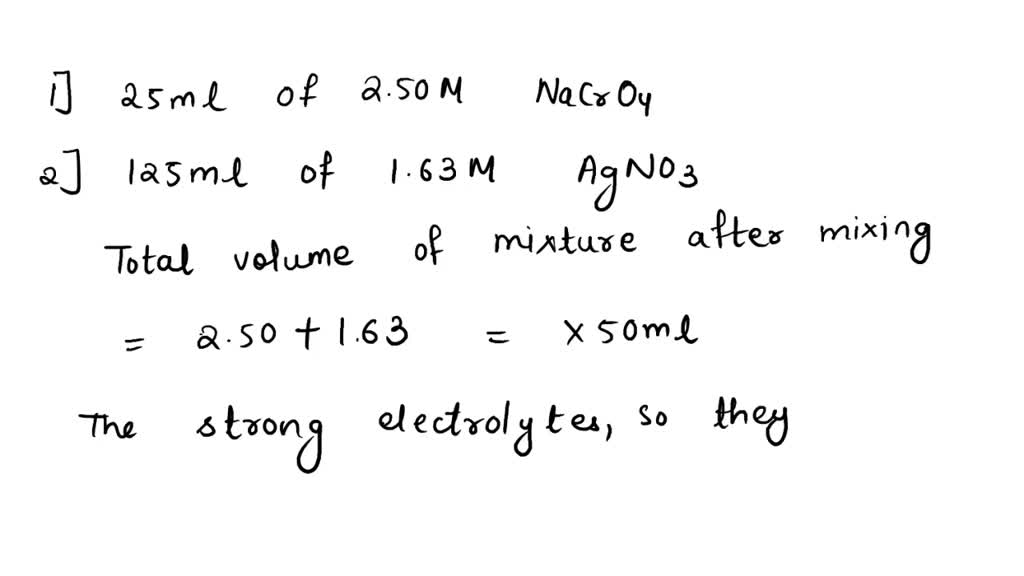 1] 25ml of 2.50M NaCrO4
2] 125ml of 1.63M AgNO3
Total volume of mixture after mixing
= 2.50 + 1.63 = x50ml
The strong electrolytes, so they